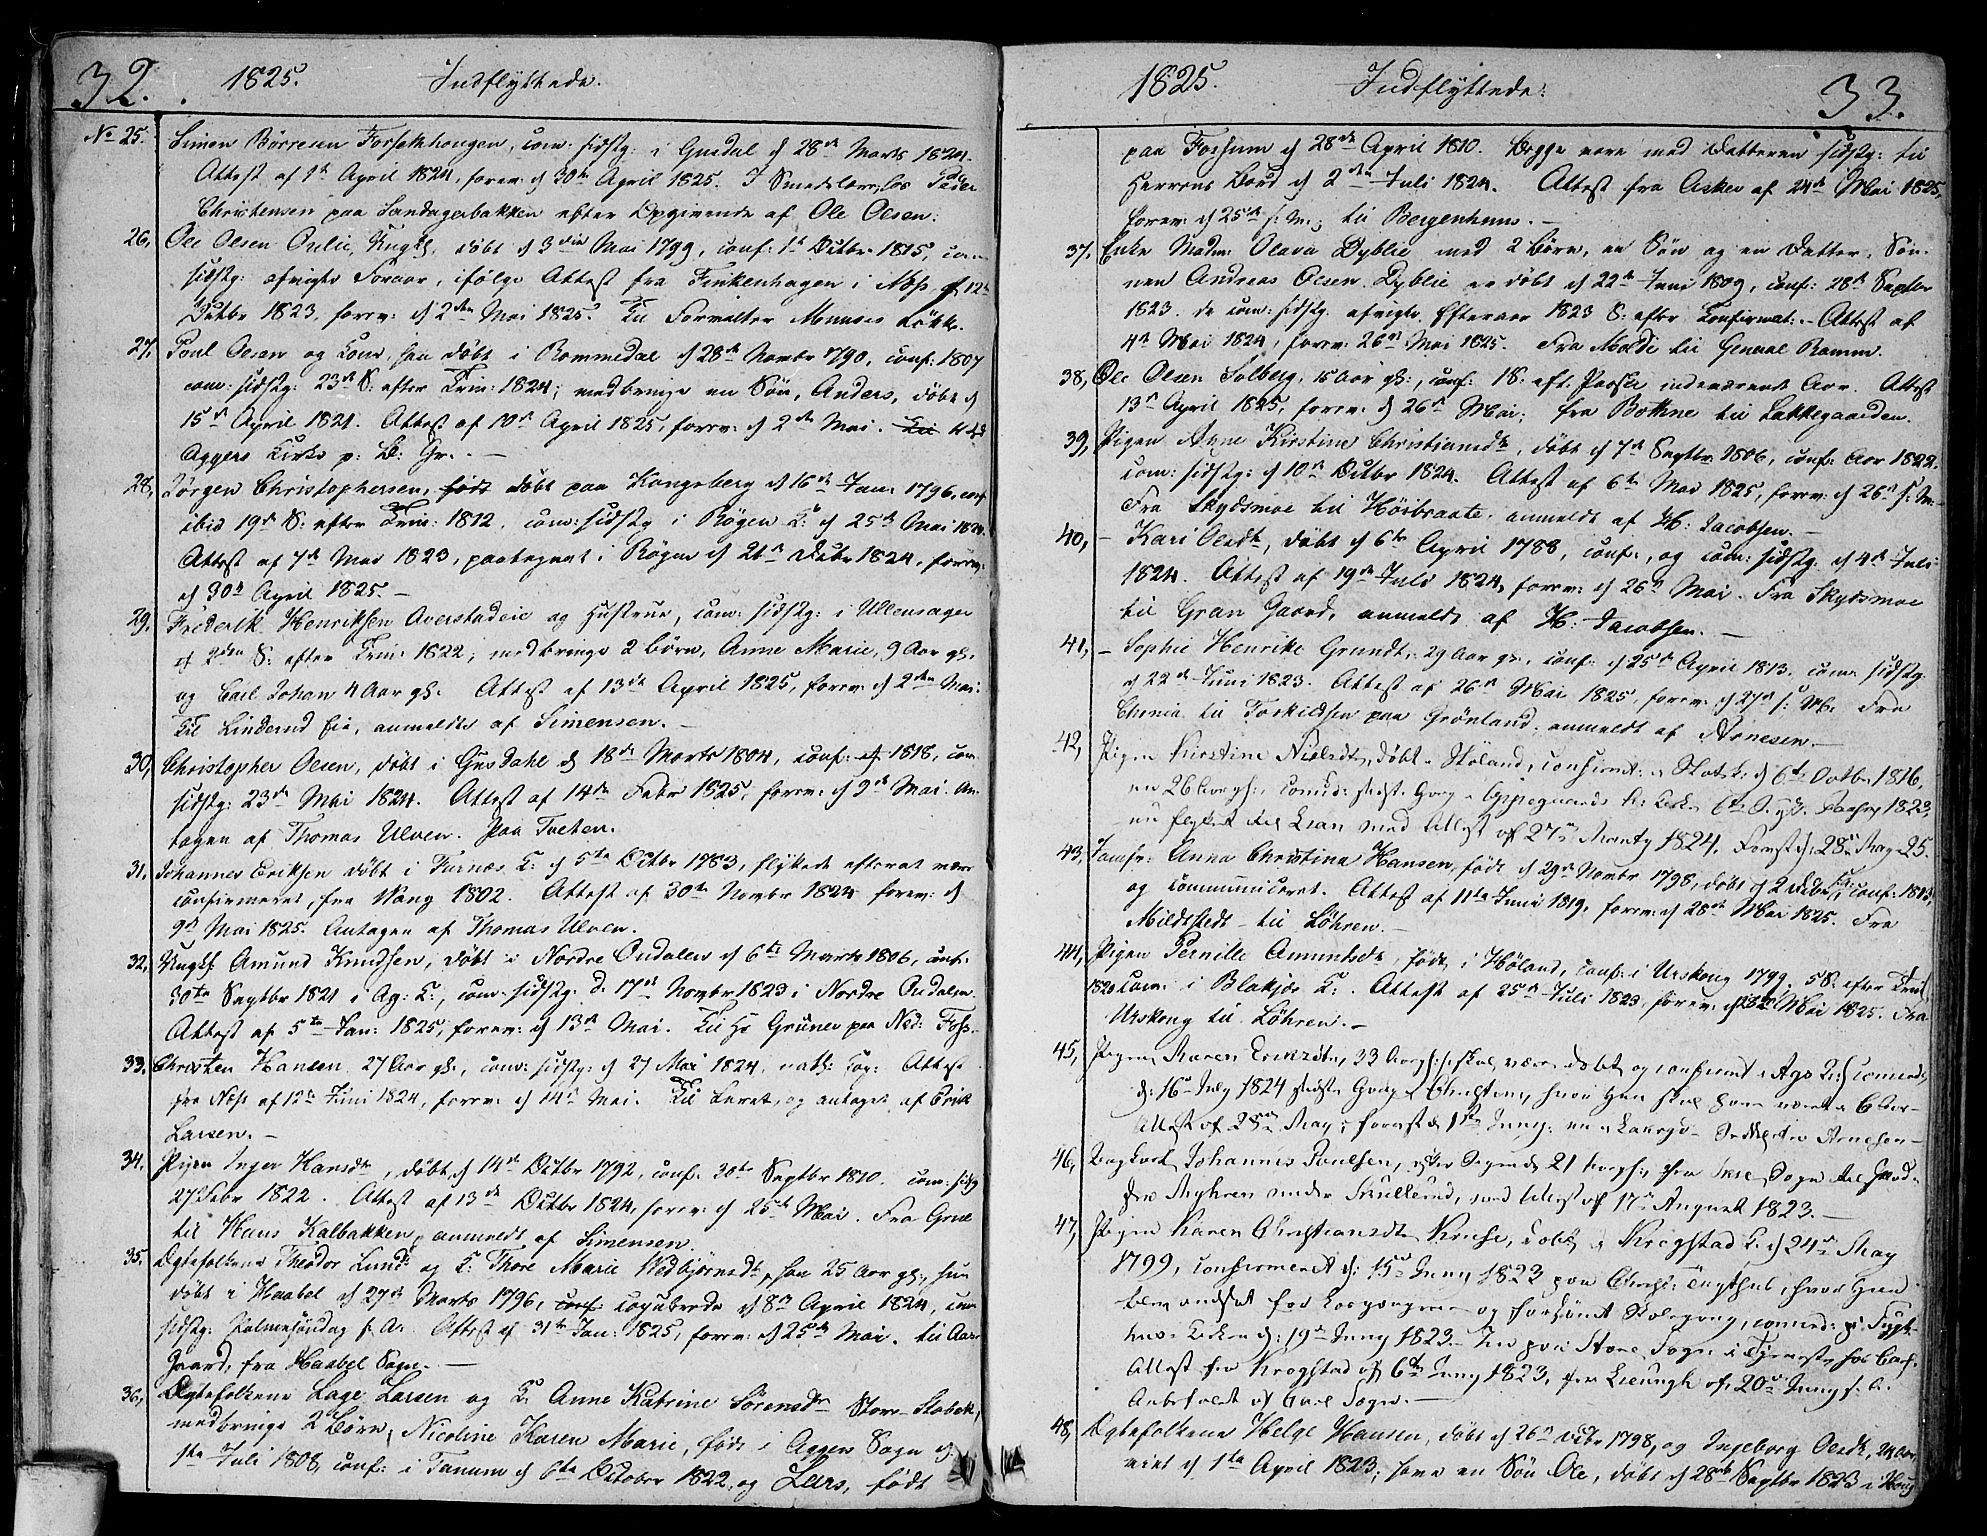 32. 1825. Indflyttede.
No 25. Simen Børresen Forsethhougen, com: sidstg: i Gusdal d 28de Marts 1824.
Attest af 1st April 1824, forev: d 30te April 1825. I Smedelære hos Peder
Christensen paa Sandagerbakken efter Opgivende af Ole Olsen.
26, Ole Olsen Oulie, Ungk:, døbt d 3die Mai 1799, conf: 1st Octbr 1815, com:
sidstg: afvigte Foraar, ifølge Attest fra Finkenhagen i Næs af 12te
Octbr 1823, forev: d 2den Mai 1825. Til Forvalter Monsees Løkke.
27, Poul Olsen og Kone, han døbt i Rommedal d 28de Novbr 1790, conf: 1807
com: sidstg: 23de S: efter Trin: 1824; medbringe en Søn, Anders, døbt d
15de April 1821. Attest af 10de April 1825, forev: d 2den Mai. Til
Aggers Kirke p: B: Gr. –
28, Jørgen Christophersen, født døbt paa Kongsberg d 16de Jan: 1796, conf:
ibid 19de S: efter Trin: 1812, com: sidstg i Røgen K: d 25de Mai 1820.
Attest af 7de Mai 1823, paategnet i Røgen d 21de Octbr 1824, forev:
d 30te April 1825. –
29, Frederik Henriksen Averstadeie og Hustrue, com: sidstg: i Ullensager
d 2den S: efter Trin: 1822, medbringe 2 Børn, Anne Marie, 9 Aar gl:
og Carl Johan 4 Aar gl: Attest af 13de April 1825, forev: d 2den Mai:
Til Linderud Eie, anmeldt af Simensen. –
30, Christopher Olsen, døbt i Gusdahl d 18de Marts 1804, conf: 1818, com:
sidstg: 23de Mai 1824. Attest af 14de Febr 1825, forev: d 9de Mai. An-
tagen af Thomas Ulven. Paa Tveten.
31, Johannes Eriksen døbt i Furnæs K: d 5te Octbr 1783, flyttede efterat være
confirmeret, fra Vang 1802. Attest af 30te Novbr 1824 forev: d
9de Mai 1825. Antagen af Thomas Ulven.
32, Ungk: Amund Knudsen, døbt i Nordre Oudalen d 6te Marts 1806, conf:
30te Septbr 1821 i Ag: K:, com: sidstg: d: 17de Novbr 1823 i Nordre Oudalen.
Attest af 5te Jan: 1825, forev: d 13de Mai. Til Hr Grüner paa Ned: Foss.
33, Christen Hansen, 27 Aar gl:, com: sidstg: d 27 Mai 1824, Attest
fra Næs af 12te Juni 1824, forev: d 14de Mai. Til Leret, og antaget af Erik
Larsen. –
34, Pigen Inger Hansdtr, døbt d 14de Octbr 1792, conf: 30te Septbr 1810. com: sidstg
27 Febr 1822. Attest af 13de Octbr 1824, forev: d 25de Mai. Fra Grue
til Hans Kalbakken, anmeldt af Simensen.
35, Ægtefolkene Theodor Lund og K: Thore Marie Wedbjørnsdtr, han 25 Aar gl:, hun
døbt i Haabel d 27de Marts 1796, conf: copulerede d 8de April 1824, com:
sidstg: Palmesøndag s: A: Attest af 31te Jan: 1825, forev: d 25de Mai. til Aars
Gaard, fra Haabel Sogn. –
36, Ægtefolkene Lage Larsen og K: Anne Katrine Sørensdtr Store-Stabek,
medbringe 2 Børn, Nicoline Karen Marie, født i Aggers Sogn d
1ste Juli 1808, conf: i Tanum d 6te October 1822, og Lars, født
1825. Indflyttede: 33.
paa Fossum d 28de April 1810. Begge vare med Datteren sidstg: til
Herrens Bord d 2den Juli 1824. Attest fra Asker af 24de Mai 1825,
forev: d 25de s: M:, til Bergenhuus. –
37, Enke Madm: Olava Dyblie med 2 Børn, en Søn og en Datter. Søn-
nen Andreas Olsen Dyblie er døbt d 22de Juni 1809, conf: 28de Septbr
1823. de com: sidstg: afvigte Efteraar 1823 S: efter Confirmat: – Attest af
4de Mai 1824, forev: 26de Mai 1825. Fra Molde til General Ramm.
38, Ole Olsen Solberg, 15 Aar gl:, conf: 1 S: eft: Paaske indeværende Aar. Attest
13de April 1825, forev: d 26de Mai: fra Bothne til Lakkegaarden.
39, Pigen Anne Kirstine Christiansdtr, døbt d 7de Septbr 1806, conf: Aar 1822,
com: sidstg: d 10de Octbr 1824. Attest af 6te Mai 1825, forev: d 26de s: M:
Fra Skydsmoe til Høibraate. anmeldt af H: Jacobsen. –
40, – Kari Olsdtr, døbt d 6te April 1788, conf:, og com: sidstg: d 4de Juli
1824. Attest af 19de Juli 1824, forev: d 26de Mai. Fra Skydsmoe
til Gran Gaard, anmeldt af H: Jacobsen. –
41, – Sophie Henrike Grundt, 29 Aar gl:, conf: d 25de April 1813, com: sidstg:
d 22de Juni 1823. Attest af 26de Mai 1825, forev: d 27de s: M: Fra
Chrnia til Torkildsen paa Grønland. anmeldt af Arnesen. –
42, Pigen Kirstine Nielsdtr, døbt i Høland, confirmt: i d 6te Octbr 1816,
nu 26 Aar gl:, comd: sidste Gang i Oppegaards Kirke 1823,
nu flyttet til Lian med Attest af 27de Marty 1824. Forevst d: 28de May 25.
43, Jomfr: Anna Christina Hansen, født d 29de Novbr 1798, døbt d 2 Octbr, conf: 1813,
og communiceret. Attest af 11te Juni 1819, forev: d 28de Mai 1825. Fra
Mildstedt til Løhren. –
44, Pigen Pernille Amundsdtr, født i Høland, conf: i Urskoug 1799. 5 S: efter Trin:
1820 com: i Blakjær K: Attest af 25de Juli 1823, forev: d Mai 1825. Fra
Urskoug til Løhren. –
45, Pigen Maren Eriksdtr, 33 Aar gl: skal være døbt og confirmt i Ags K: comd:
d: 16de July 1824 sidste Gang i Christiania, hvor hun skal have været i 6 Aar –
Attest af 28de May; forevst d 1ste Juny: Arnesen –
46, Johannes Poulsen, 21 Aar gl: fra Sogn til
Myhren under Skullerud, med Attest af 17de August 1823. –
47, Pigen Karen Christiansdtr Kruse, døbt i Krogstad K: d 24de May
1799, confirmeret d: 15de Juny 1823 paa Christ: Tugthus, hvor hun
blev indsat for Løsgængerie og
Kirke d: 19de Juny 1823. i Tjeneste hos
Attest fra Krogstad af 6te Juny 1823, fra Lieungh af 20de Juny s: A:
48, Ægtefolkene Helge Hansen, døbt d 26de Octbr 1798, og Ingeborg Olsdtr, 24 Aar,
viet d 1ste April 1823, have en Søn Ole, døbt d 28de Septbr 1823 i